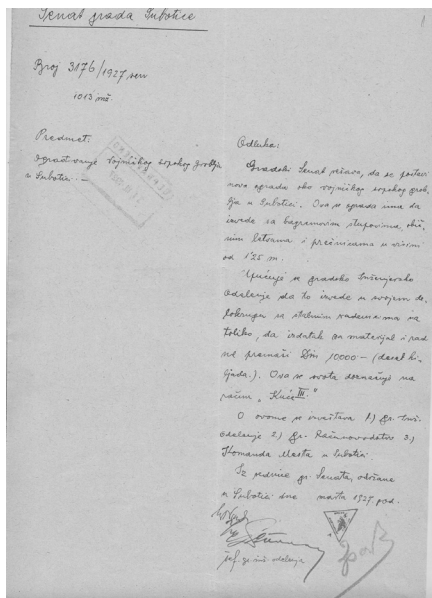 Senat grada Subotice
Broj 3176/1927 sen
1013 inž.
Predmet:
ograđivanje vojničkog srpskog groblja
u Subotici. —
Odluka:
Gradski Senat rešava, da se postavi
nova ograda oko vojničkog srpskog grob
lja u Subotici. Ova se ograda ima da
izvede sa bagremovim stupovima, obič
nim letvama i prečnicama u visini
od 1'25 m.
Upućuje se gradsko Inženjersko
Odelenje da to izvede u svojem de
lokrugu sa stalnim radenicima
toliko, da izdatak za materijal i rad
ne premaši Din 10000— (deset hi
ljada). Ova se svota doznačuje na
račun „Kuće III."
O ovome se izveštava 1) gr. Inž.
Odelenje 2) gr. Računovodstvo 3.)
Komanda Mesta u Subotici.
Iz sednice gr. Senata, održane
u Subotici dne marta 1927 god.
šef gr. inž. odelenja